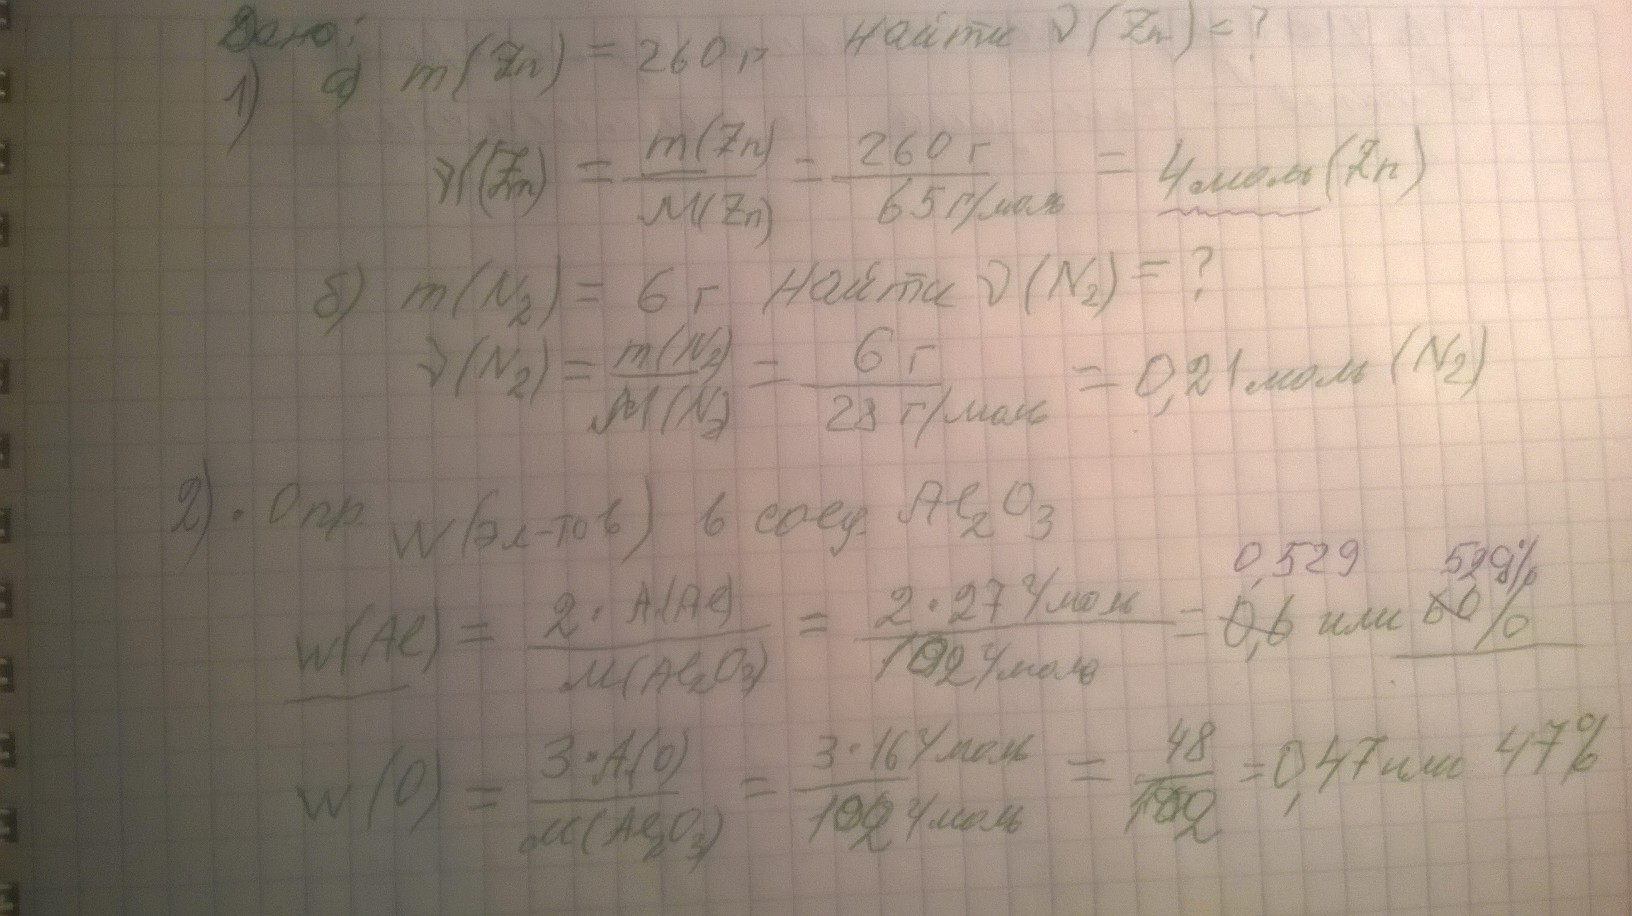 Дано:
1) а) m(Zn) = 260 г Найти ν(Zn) = ?
ν(Zn) = m(Zn) / M(Zn) = 260 г / 65 г/моль = 4 моль (Zn)
б) m(N₂) = 6 г Найти ν(N₂) = ?
ν(N₂) = m(N₂) / M(N₂) = 6 г / 28 г/моль = 0,21 моль (N₂)
2). Опр. W(эл-тов) в соед. Al₂O₃
0,529 52,9%
w(Al) = 2·Ar(Al) / M(Al₂O₃) = 2·27 г/моль / 102 г/моль = 0,6 или 60%
w(O) = 3·Ar(O) / M(Al₂O₃) = 3·16 г/моль / 102 г/моль = 48 / 102 = 0,47 или 47%